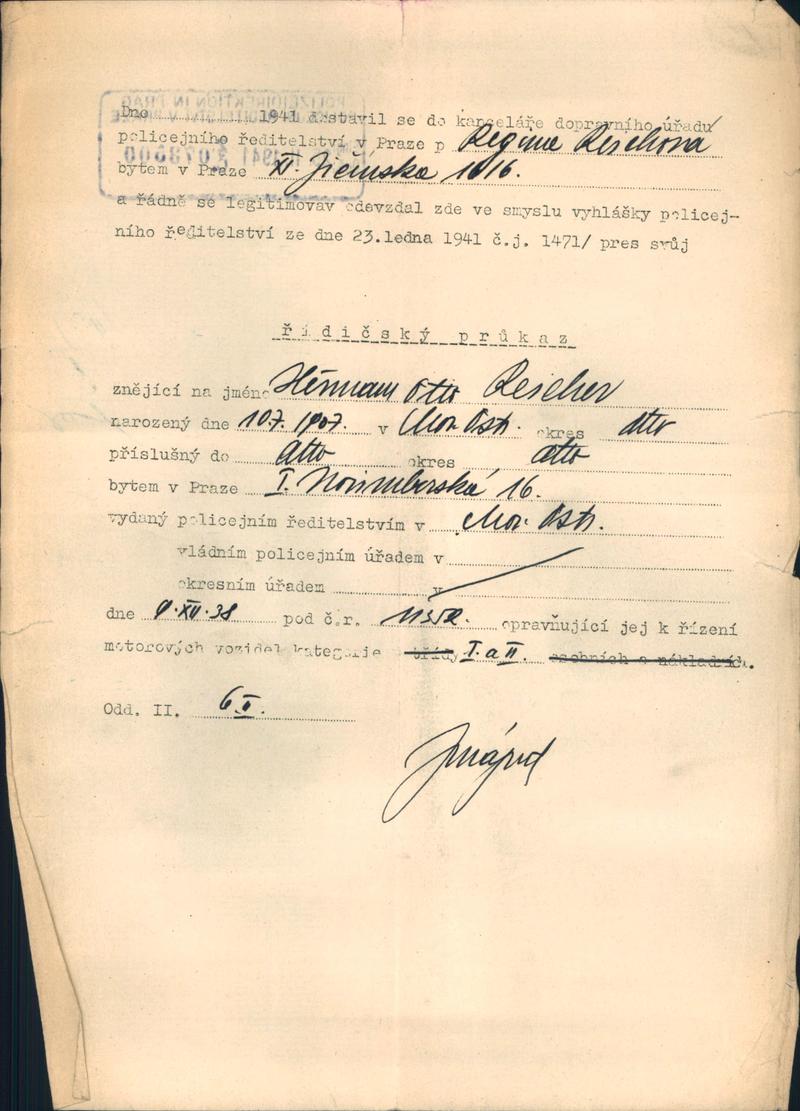 Dne 1941 dostavil se do kanceláře dopravního úřadu
policejního ředitelství v Praze p Regina Reichová
bytem v Praze XI. Jičínská 1616.
a řádně se legitimovav odevzdal zde ve smyslu vyhlášky policej-
ního ředitelství ze dne 23.ledna 1941 č.j. 1471/ pres svůj
řidičský průkaz
znějící na jméno Heřman Otto Reicher
narozený dne 10.7. 1907. v Mor. Ostr. okres dtto
příslušný do dtto okres dtto
bytem v Praze I. Norimberská 16.
vydaný policejním ředitelstvím v Mor. Ostr.
vládním policejním úřadem v
okresním úřadem v
dne 9.XII.38 pod č.r. opravňující jej k řízení
motorových vozidel kategorie třídy I. a II. osobních a nákladních.
Odd. II. 6/II.